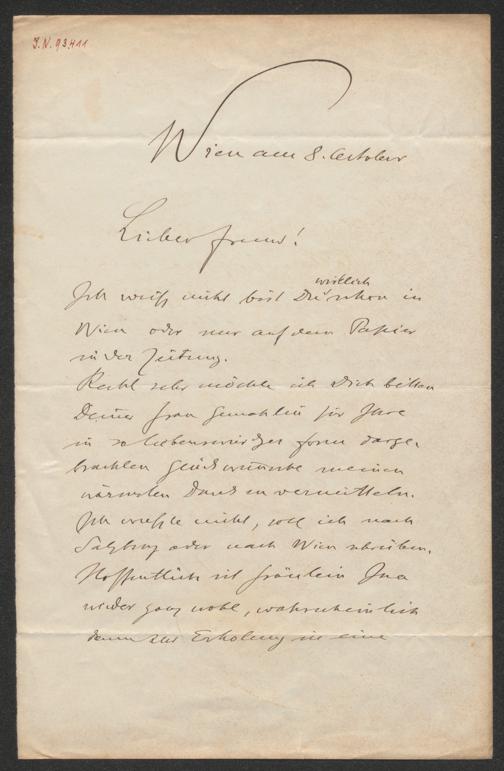 I.N. 93411
Wien am 8. October
Lieber Freund!
wirklich
Ich weiß nicht bist Du schon in
Wien oder nur auf dem Papier
in der Zeitung.
Recht sehr möchte ich Dich bitten
Deiner Frau Gemahlin für Ihre
in so liebenswürdger Form darge-
brachten Glückwünsche meinen
wärmsten Dank zu vermitteln.
Ich wußte nicht, soll ich nach
Salzburg oder nach Wien schreiben.
Hoffentlich ist Fräulein
wieder ganz wohl, wahrscheinlich
dann zur Erholung in eine